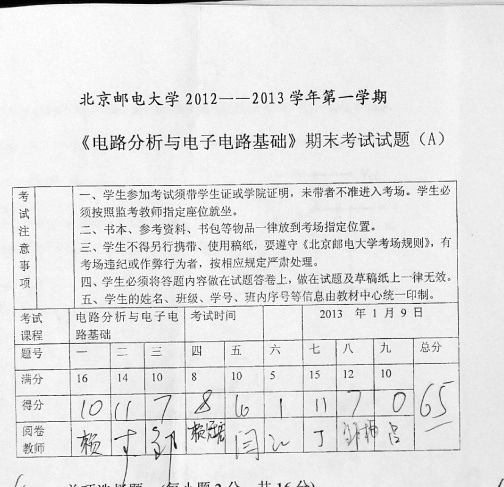 北京邮电大学 2012——2013 学年第一学期
《电路分析与电子电路基础》期末考试试题（A）
考试注意事项
一、学生参加考试须带学生证或学院证明，未带者不准进入考场。学生必
须按照监考教师指定座位就坐。
二、书本、参考资料、书包等物品一律放到考场指定位置。
三、学生不得另行携带、使用稿纸，要遵守《北京邮电大学考场规则》，有
考场违纪或作弊行为者，按相应规定严肃处理。
四、学生必须将答题内容做在试题答卷上，做在试题及草稿纸上一律无效。
五、学生的姓名、班级、学号、班内序号等信息由教材中心统一印制。
考试课程 电路分析与电子电路基础 考试时间 2013 年 1 月 9 日
题号 一 二 三 四 五 六 七 八 九 总分
满分 16 14 10 8 10 5 15 12 10
得分 10 11 7 8 1 11 7 0 65
阅卷教师